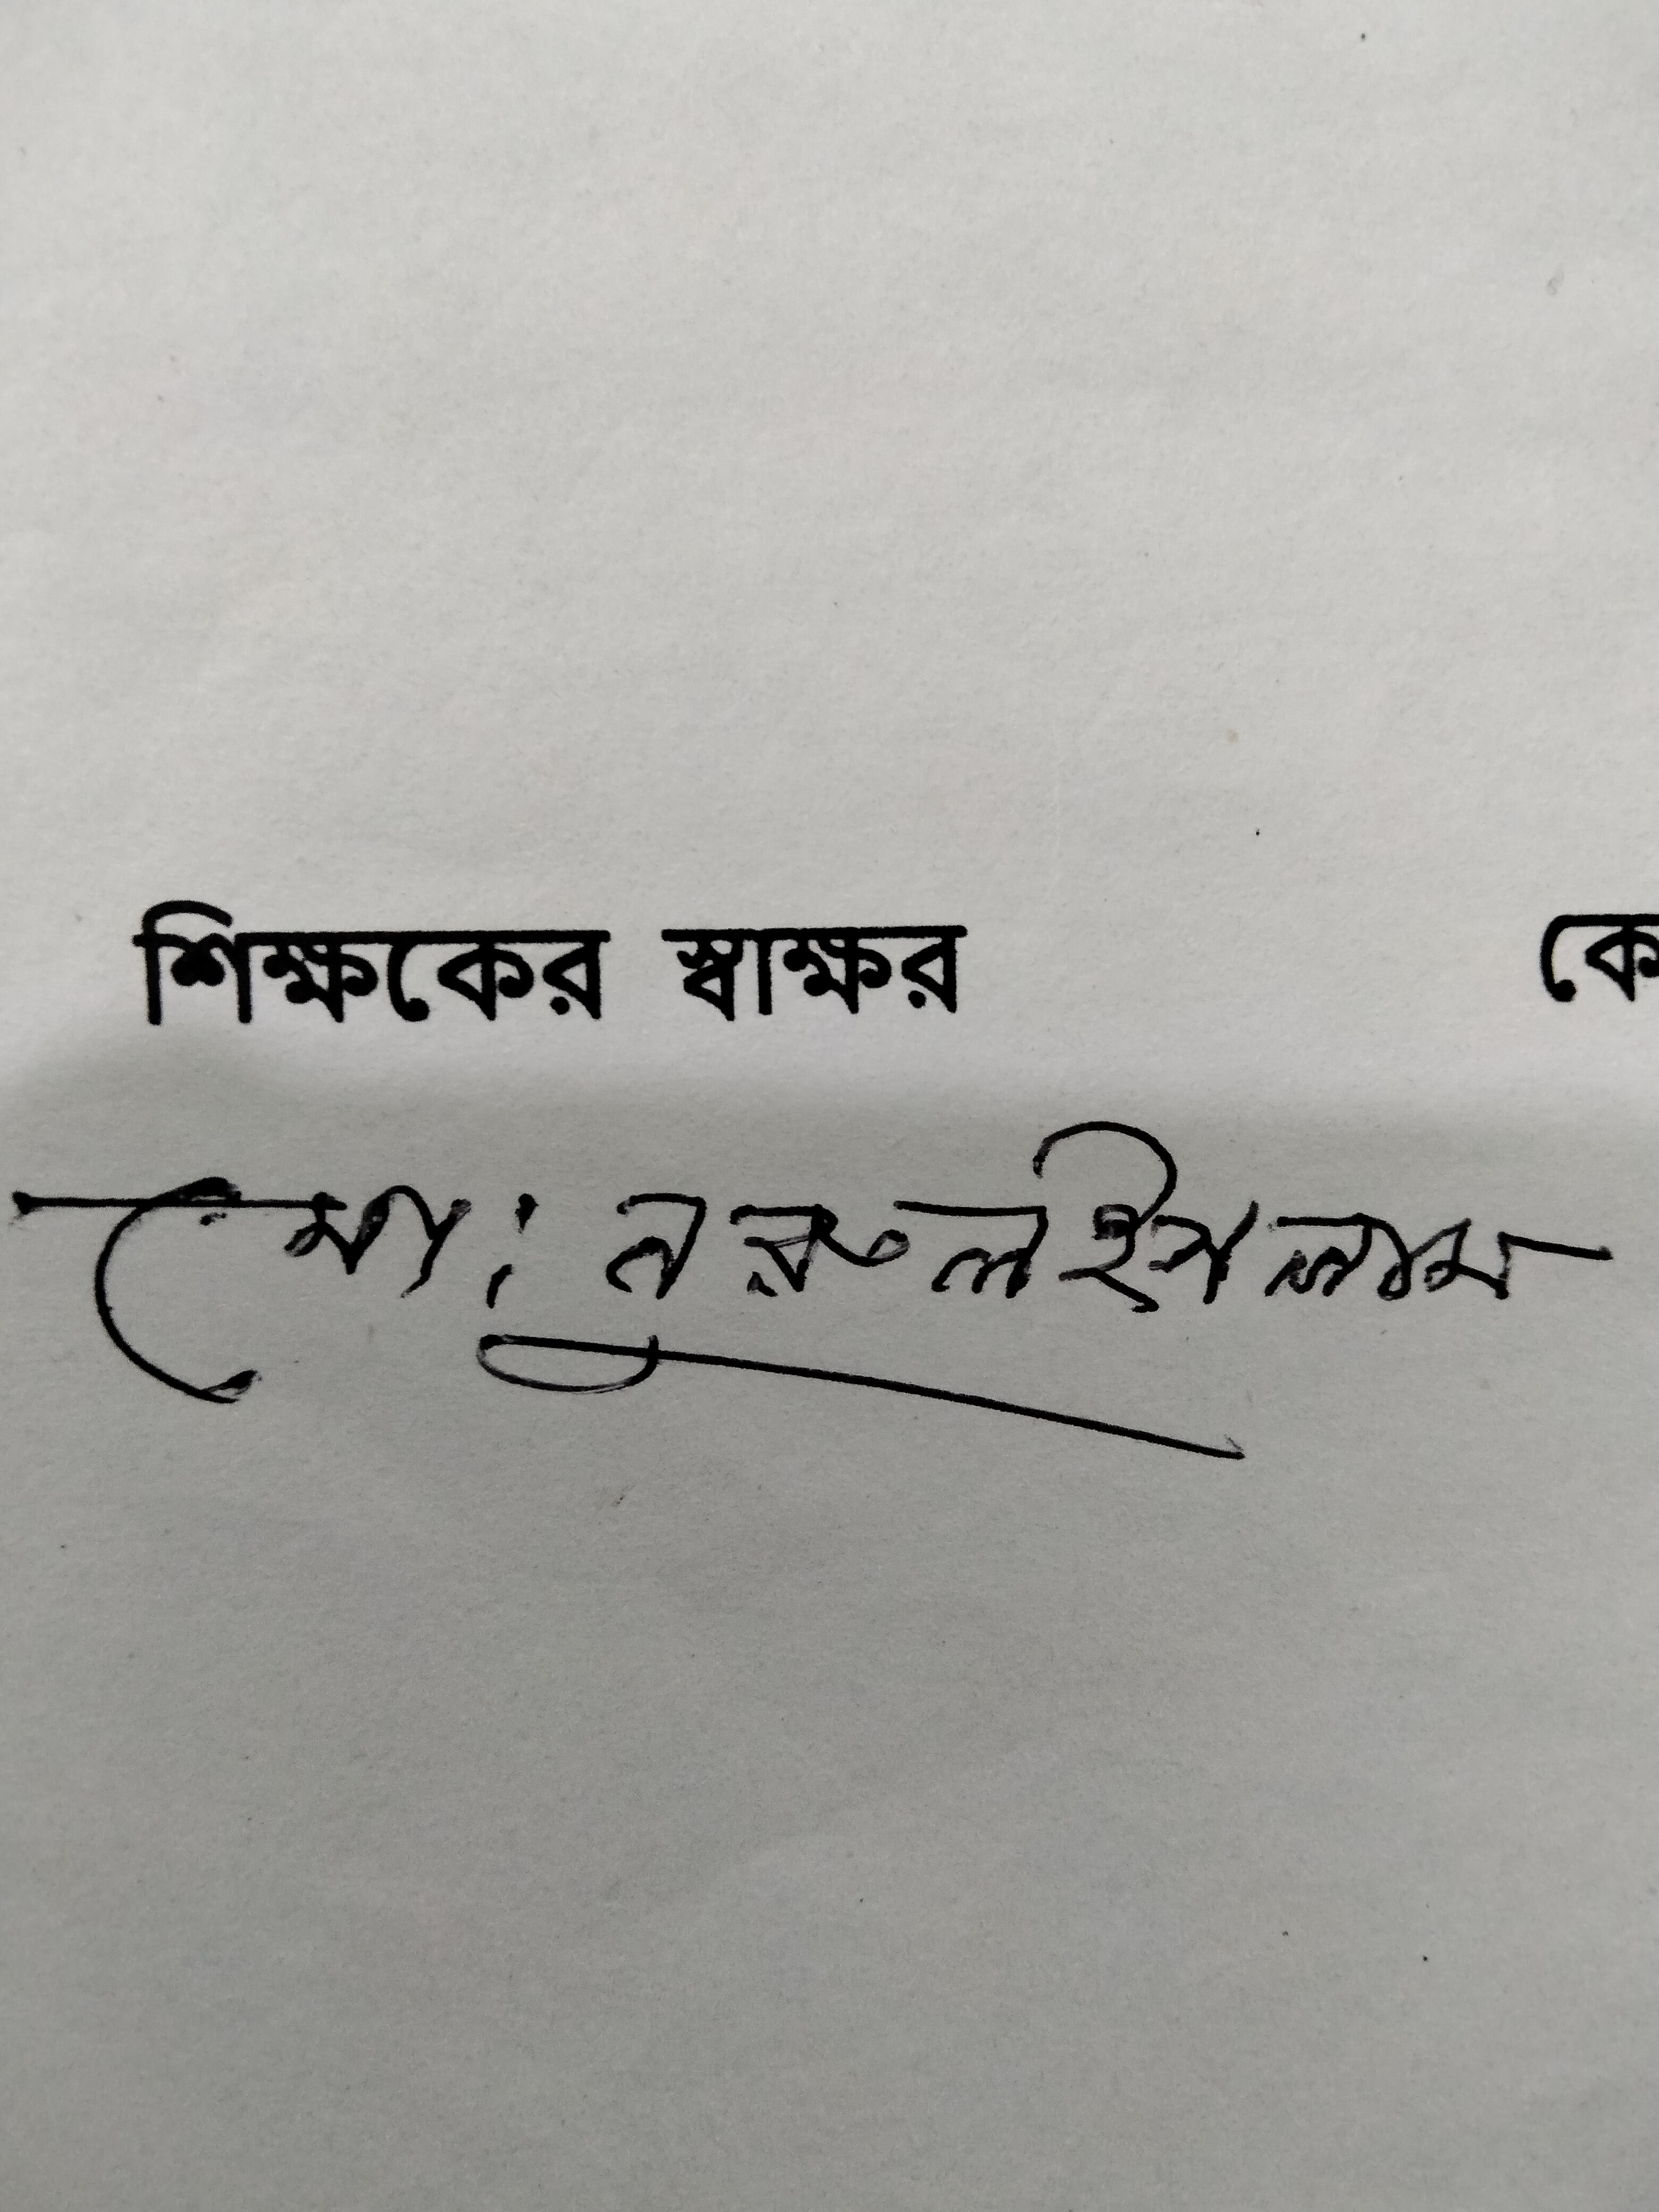 শিক্ষকের স্বাক্ষর কে
মোঃ নুরুল ইসলাম